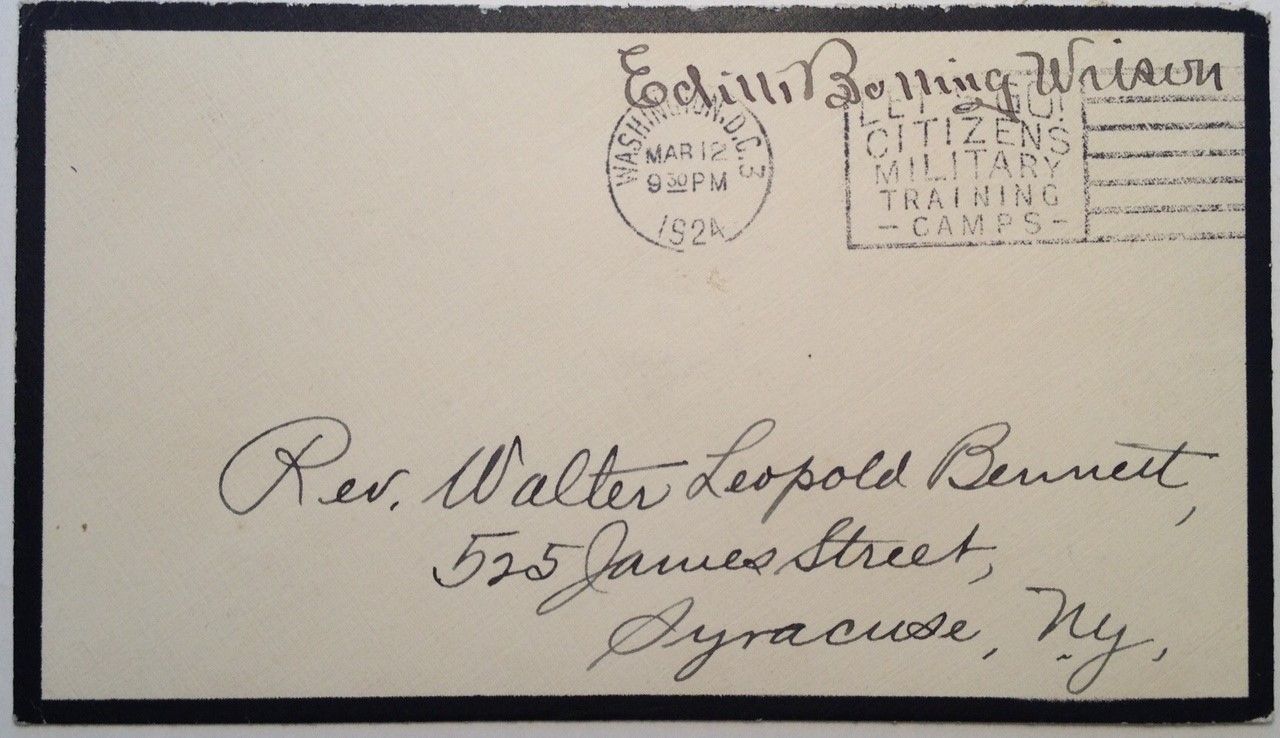 Edith Bolling Wilson
WASHINGTON, D.C. 3
MAR 12
9 30 PM
1924
LET'S GO!
CITIZENS
MILITARY
TRAINING
- CAMPS -
Rev. Walter Leopold Bennett,
525 James Street,
Syracuse, N.Y.,